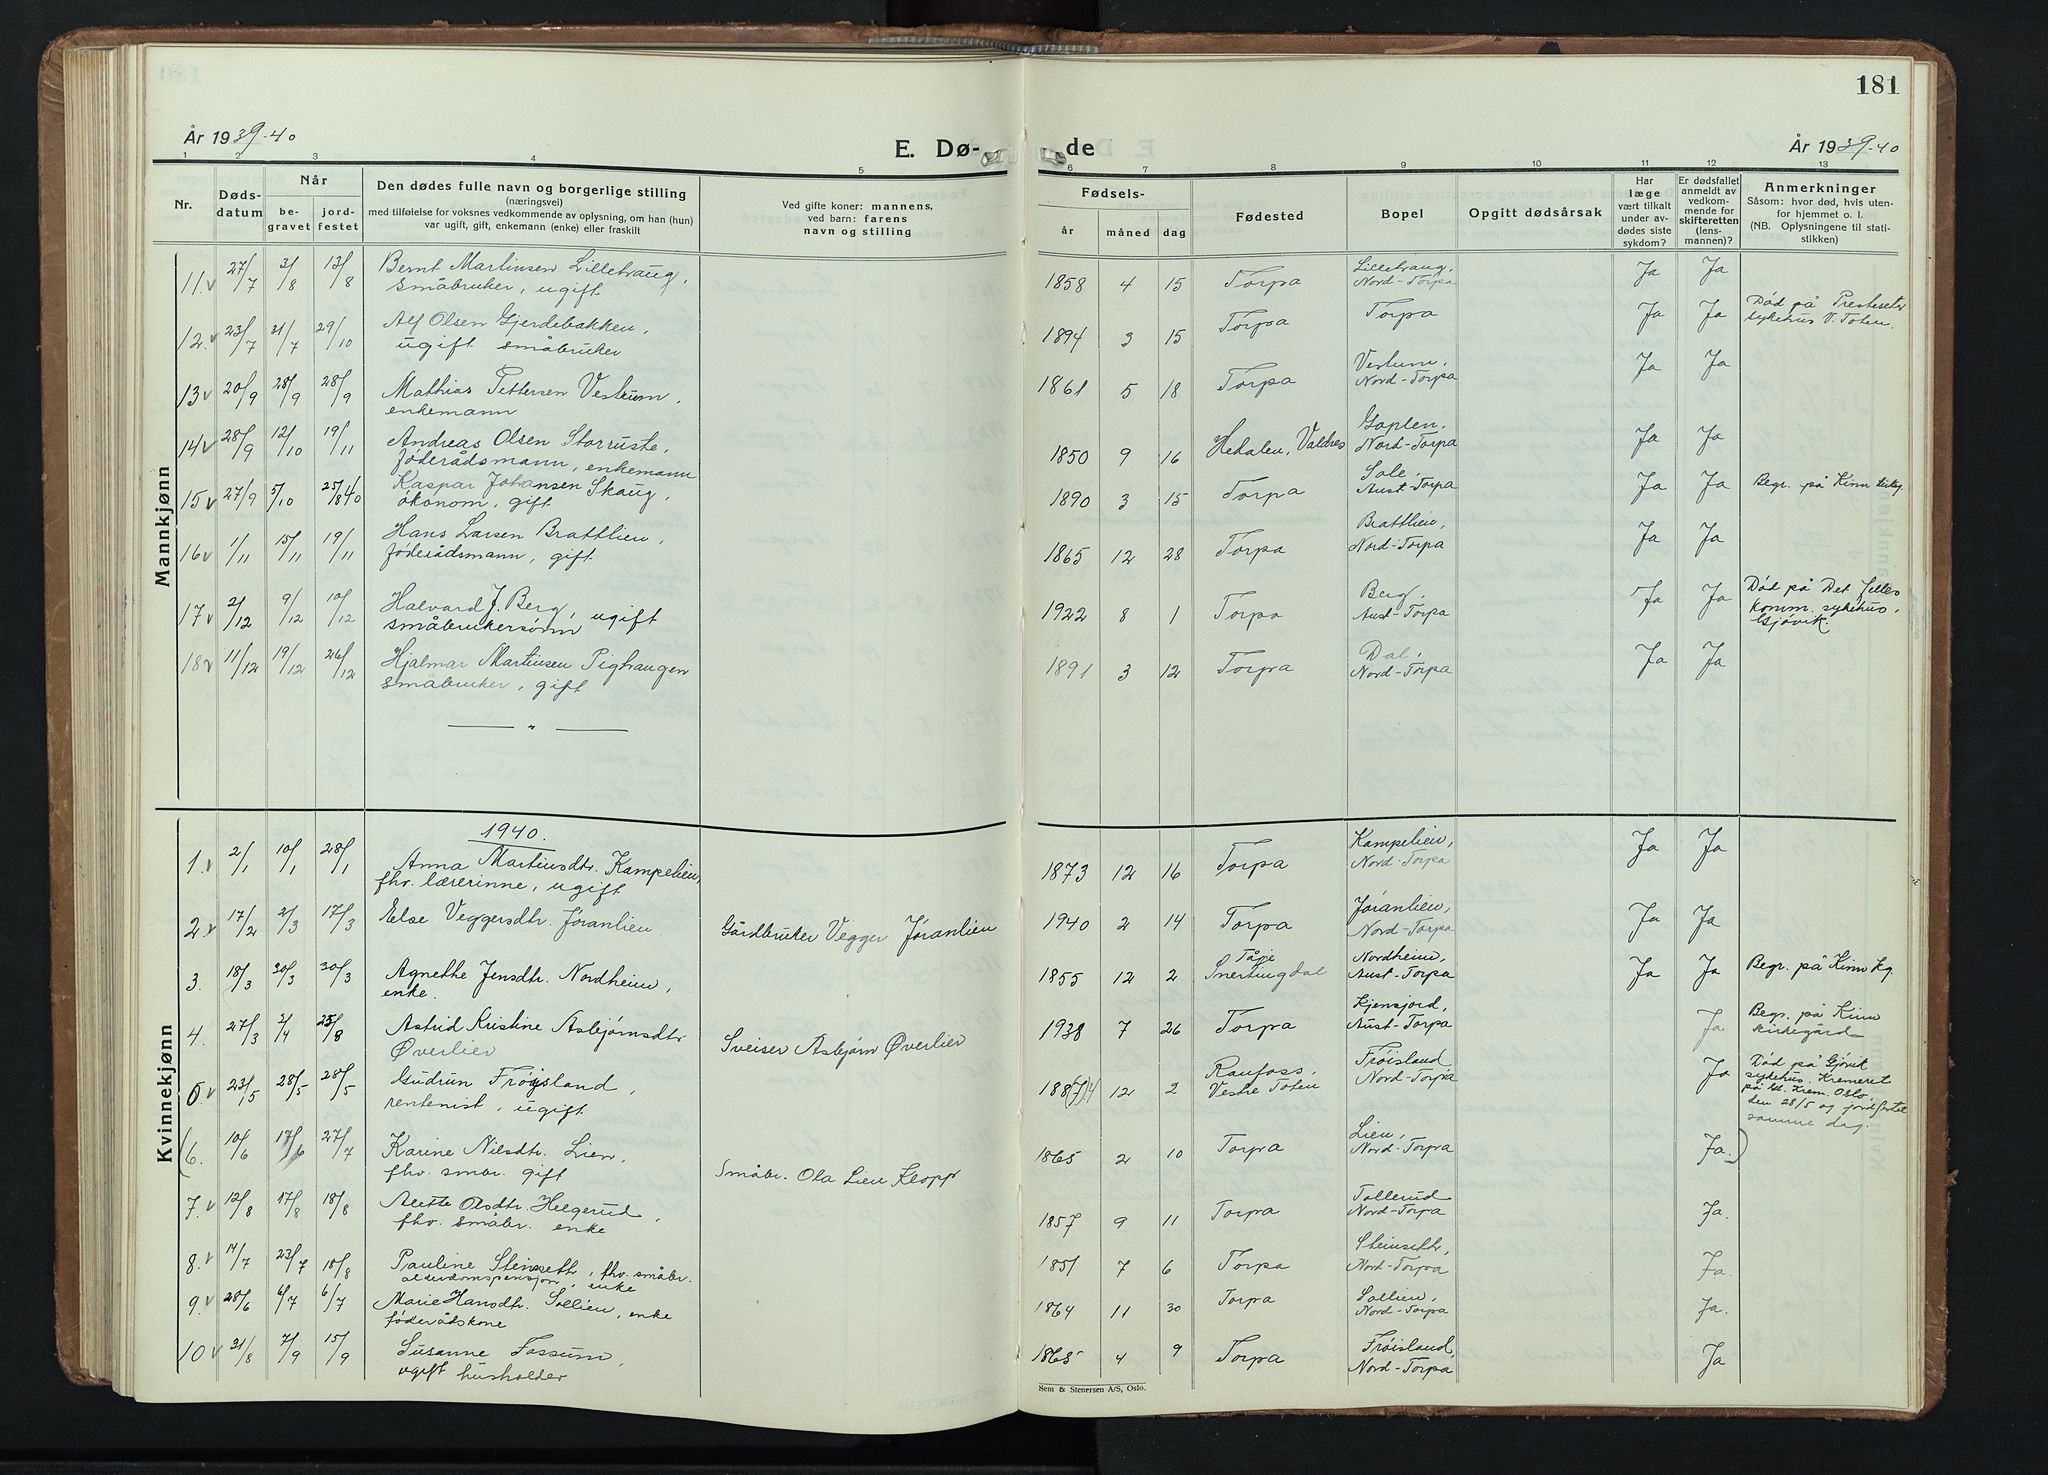 181
År 1939-40
E. Dø-
de
År 1939-40
1 2 3 4 5 6 7 8 9 10 11 12 13
Nr.
Døds-
datum
Når
be-
gravet
jord-
festet
Den dødes fulle navn og borgerlige stilling
(næringsvei)
med tilføielse for voksnes vedkommende av oplysning, om han (hun)
var ugift, gift, enkemann (enke) eller fraskilt
Ved gifte koner: mannens,
ved barn: farens
navn og stilling
Fødsels-
år måned dag
Fødested
Bopel
Opgitt dødsårsak
Har
læge
vært tilkalt
under av-
dødes siste
sykdom?
Er dødsfallet
anmeldt av
vedkom-
mende for
skifteretten
(lens-
mannen)?
Anmerkninger
Såsom: hvor død, hvis uten-
for hjemmet o. l.
(NB. Oplysningene til stati-
stikken)
Mannkjønn
11. 27/7 3/8 13/8 Bernt Martinsen Lillehaug,
småbruker, ugift
1858 4 15 Torpa Lillehaug,
Nord-Torpa Ja Ja
12. 23/7 31/7 29/10 Alf Olsen Gjerdebakken,
ugift småbruker
1894 3 15 Torpa Torpa Ja Ja Død på Presteseter
sykehus V. Toten.
13 20/9 28/9 28/9 Mathias Pettersen Vestrum,
enkemann
1861 5 18 Torpa Vestum,
Nord-Torpa Ja Ja
14 28/9 12/10 19/11 Andreas Olsen Storruste,
føderådsmann, enkemann
1850 9 16 Hedalen, Valdres Goplen,
Nord-Torpa Ja Ja
15 27/9 5/10 25/8 40 Kaspar Johansen Skaug,
økonom, gift
1890 3 15 Torpa Sole,
Aust-Torpa Ja Ja Begr. på Kinn
16 1/11 15/11 19/11 Hans Larsen Brattlien,
føderådsmann, gift
1865 12 28 Torpa Brattlien,
Nord-Torpa Ja Ja
17 2/12 9/12 10/12 Halvard J. Berg, ugift
småbrukersønn
1922 8 1 Torpa Berg,
Aust-Torpa Ja Ja Død på Det felles
komm. sykehus,
Gjøvik.
18 11/12 19/12 26/12 Hjalmar Martinsen Pighaugen
småbruker, gift
1891 3 12 Torpa Dal,
Nord-Torpa Ja Ja
— " —
Kvinnekjønn
1940.
1. 2/1 10/1 28/1 Anna Martinsdtr. Kampelien,
fhv. lærerinne, ugift
1873 12 16 Torpa Kampelien,
Nord-Torpa Ja Ja
2. 17/2 2/3 17/3 Else Veggersdtr. Jøranlien
Gårdbruker Vegger Jøranlien
1940 2 14 Torpa Jøranlien,
Nord-Torpa Ja Ja
3. 18/3 30/3 30/3 Agnethe Jensdtr. Nordheim,
enke.
1855 12 2 Snertingdal Nordheim,
Aust-Torpa Ja Ja Begr. på Kinn kg.
4. 27/3 2/4 25/8 Astrid Kristine Asbjørnsdtr
Øverlier
Sveiser Asbjørn Øverlier
1938 7 26 Torpa Kjensjord,
Aust-Torpa Ja Begr. på Kinn
kirkegård
5. 23/5 28/5 28/5 Gudrun Frøysland,
rentenist, ugift
12 2 Raufoss,
Vestre Toten Frøisland
Nord-Torpa Ja Død på Gjøvik
sykehus. Kremeret
på Krem. Oslo,
den 28/5 og jordfestet
samme dag.
(6. 10/6 17/6 27/7 Karine Nilsdtr. Lien,
fhv. smbr. gift
Småbr. Ola Lien Klopp
1865 2 10 Torpa Lien,
Nord-Torpa Ja.)
7. 12/8 17/8 18/8 Alette Olsdtr. Helgerud,
fhv. småbr. enke
1857 9 11 Torpa Tollerud
Nord-Torpa Ja.
8. 14/7 23/7 18/8 Pauline Steinseth, fhv. småbr.
alderdomspensjon, enke
1851 7 6 Torpa Steinseth,
Nord-Torpa Ja.
9. 28/6 6/7 6/7 Marie Hansdtr. Sollien, enke
føderådskone
1864 11 30 Torpa Sollien,
Nord-Torpa Ja.
10 31/8 7/9 15/9 Susanne Fossum,
ugift husholder
1865 4 9 Torpa Frøisland,
Nord-Torpa Ja
Sem & Stenersen A/S, Oslo.